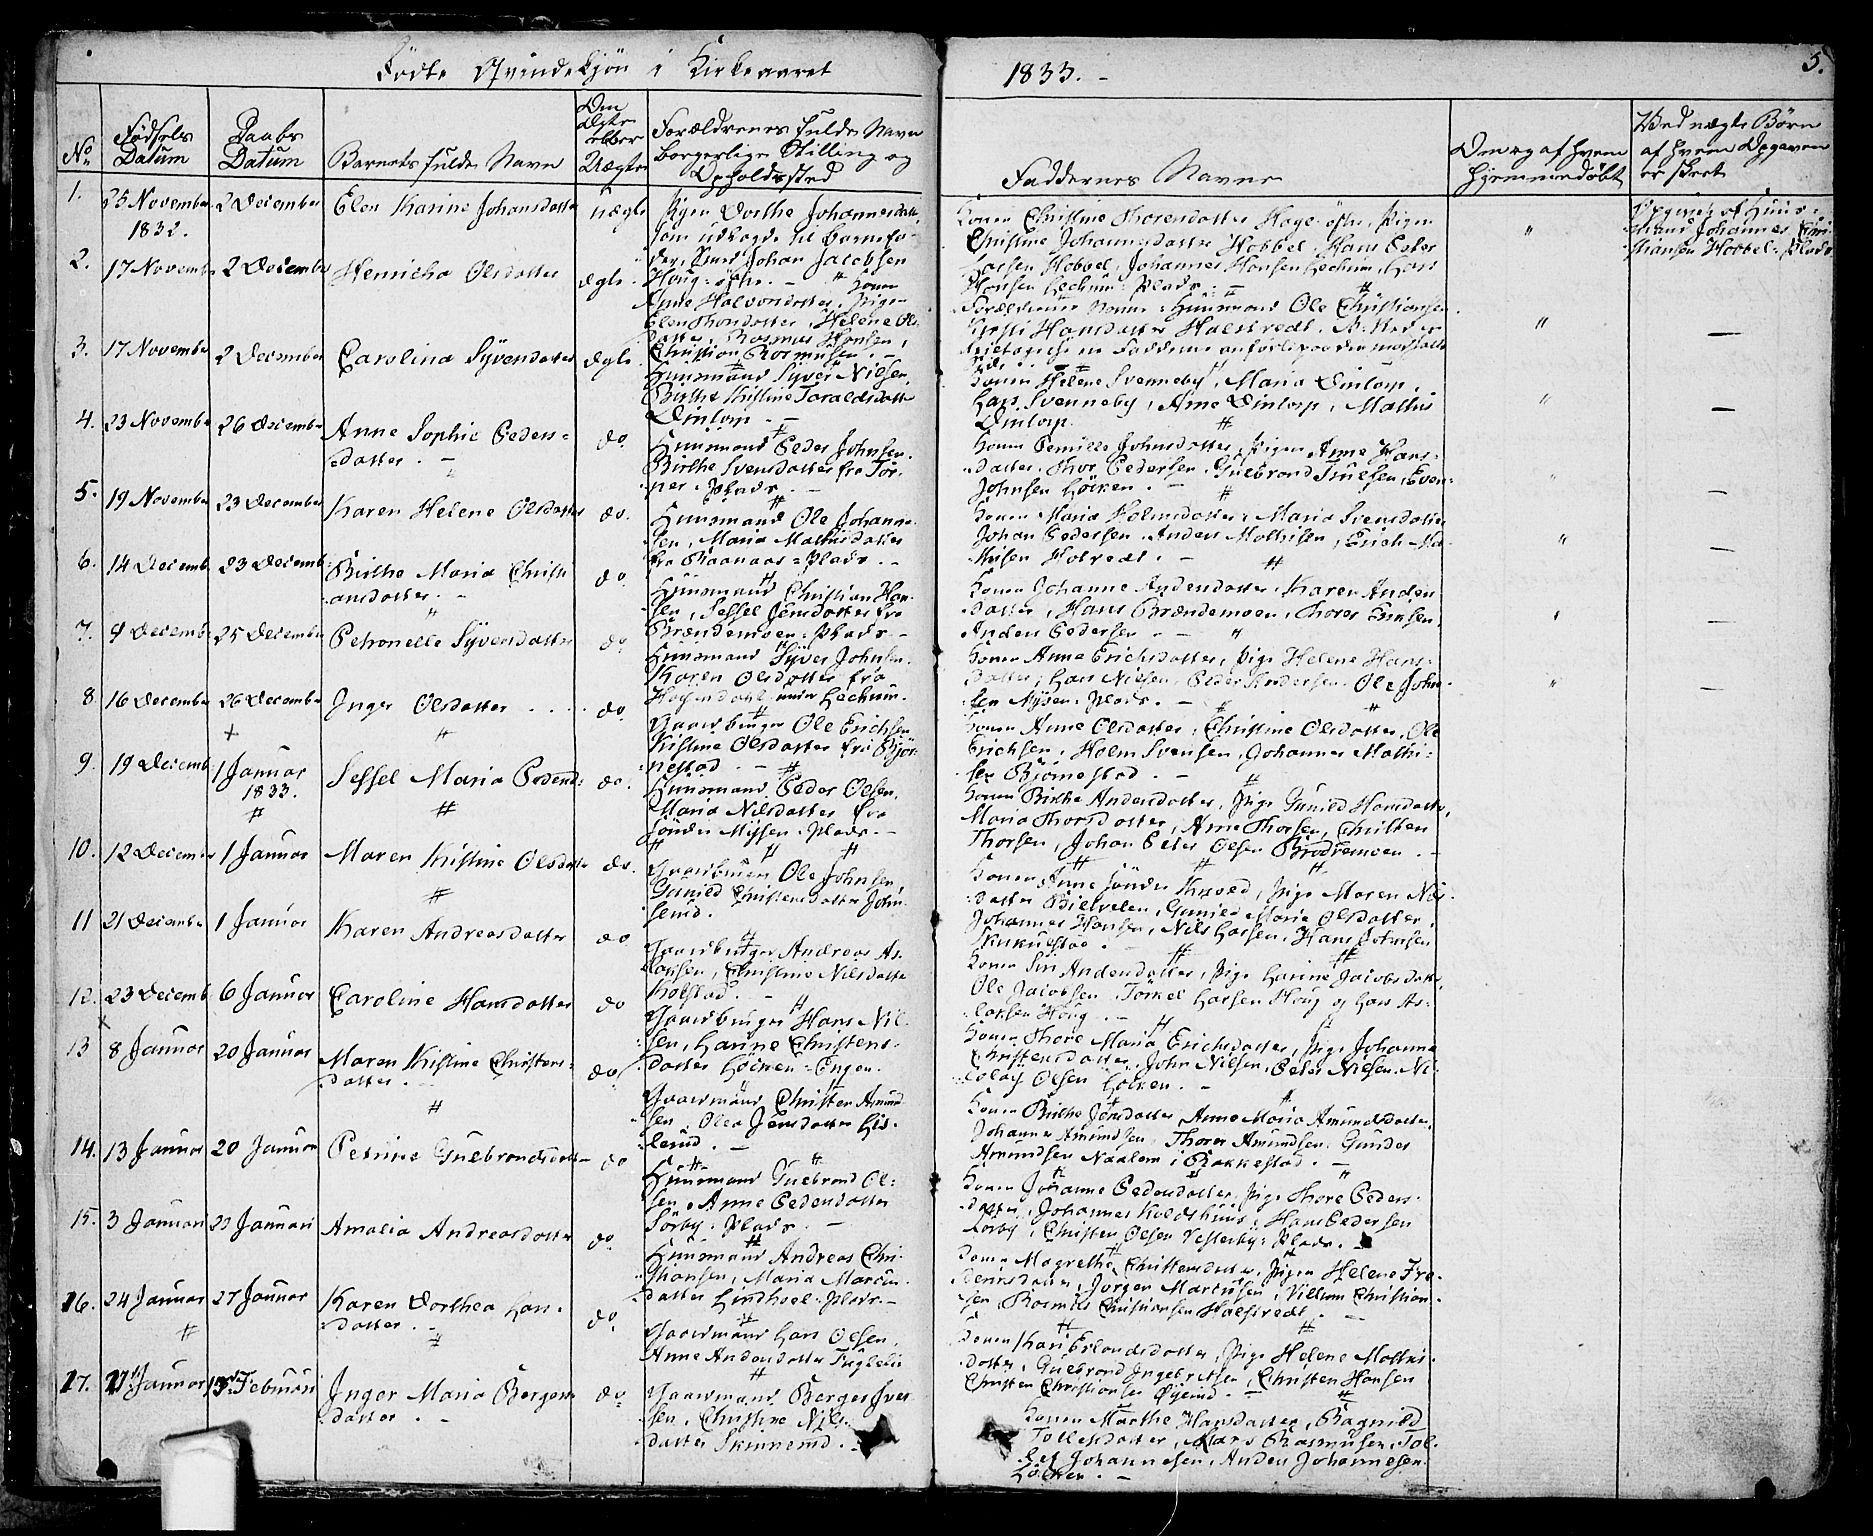 Födte Qvindekjön i Kirkeaaret 1833. -
5.
No
Födsels Datum
Daabs Datum
Barnets fulde Navn
Om Ægte eller Uægte
Forældrenes fulde Navn borgerlige Stilling og Opholdssted
Faddernes Navne
Om og af hvem hjemmedöbt
Ved uægte Börn af hvem Opgaven er skeet
1. 25 November 1832. 2 December Elen Karine Johansdatter uægte
Pigen Dorthe Johannesdatter
som udlagde til Barnefa-
der, Johan Jacobsen
Konen Christine Thoresdatter Houg, Pigen
Christine Johannesdatter Hobbel, Hans Peter
Larsen Hobbel, Johannes Hansen Lechum, Lars
Hansen Lechum Plads. -
Opgivet af Huus-
mand Johannes
Hobbel-Plads
2. 17 November 2 December Henricha Olsdatter ægte.
Anne Halvorsdatter, Pigen
Helene Ols-
datter, Rasmus Hansen,
Christian Rasmusen. -
Forældrenes Navne: Huusmand Ole Christiansen
Kirsti Hansdatter Halfsredt.
3. 17 November 2 December Carolina Syversdatter ægte.
Huusmand Syver Nielsen,
Birthe Kristine Taraldsdatter
Dintorp -
Konen Helene Svenneby, Maria Dintorp,
Lars Svenneby, Arne Dintorp, Mathis
Dintorp.
4. 23 November 26 December Anne Sophie Peders-
datter. - do
Huusmand Peder Johnsen.
Birthe Svensdatter fra Tor-
per-Plads. -
Konen Pernille Johnsdatter, Pigen Anne Hans-
datter, Thor Pedersen, Gulbrand Truelsen, Even
Johnsen Löcken. -
5. 19 November 23 December Karen Helene Olsdatter do.
Huusmand Ole Johanne-
sen, Maria Mathisdatter
fra Raanaas-Plads. -
Konen Maria Holmsdatter, Maria Svensdatter
Johan Pedersen. Anders Mathisen, Erich Ma-
thisen Holvedt. -
6. 14 Decemb. 23 Decemb. Birthe Maria Christi
ansdatter. - do.
Huusmand Christian Han-
sen, Sessel Jensdatter fra
Brændemoen-Plads -
Konen Johanne Andersdatter, Karen Anders
datter, Hans Brændemoen, Thorer Eriksen,
Anders Pedersen -
7. 4 Decemb. 25 December Petronelle Syversdatter do.
Huusmand Syver Johnsen.
Karen Olsdatter fra
under Lechum.
Konen Anne Erichsdatter, Pige Helene Hans-
datter, Lars Nielsen, Peder Andersen. Ole John-
sen Mysen-Plads. -
8 16 December 26 December Inger Olsdatter . . . do.
Gaardbruger Ole Erichsen
Kistine Olsdatter fra Björ-
nestad. -
Konen Anne Olsdatter, Christine Olsdatter, Ole
Erichsen, Holm Svensen, Johannes Mathi-
sen Björnestad. -
9. 19 Decemb. 1 Januar 1833. Sessel Maria Pedersd: do.
Huusmand Peder Olsen,
Maria Nilsdatter fra
Sönder Mysen-Plads. -
Konen Birthe Andersdatter, Pige Gunild Hansdatter,
Maria Thorsdatter, Arne Thorsen, Christen
Thorsen, Johan Peter Olsen Brödremoen. -
10. 12 December 1 Januar Maren Kistine Olsdatter do.
Gaardbruger Ole Johnsen,
Gunild Christensdatter John-
serud.
Konen Anne Sönder Kaased, Pige Maren Nils-
datter, Gunild Maria Olsdatter,
Johannes Hansen, Nils Larsen, Hans Johnsen
11 21 December 1 Januar Karen Andreasdatter do
Gaardbruger Andreas As-
lacksen, Christine Nilsdatter
Kolstad. -
Konen Siri Andersdatter, Pige Karine Jacobsdatter,
Ole Jacobsen, Törkel Larsen Houg og Lars As-
lacksen Houg. -
12. 23 Decemb. 6 Januar Caroline Hansdatter do
Gaardbruger Hans Nil-
sen, Karine Christens-
datter Löcken-Engen.
Konen Thore Maria Erichsdatter, Pige Johanne
Christensdatter, John Nilsen, Peter Nielsen, Ni-
colay Olsen Löcken. -
13 8 Januar 20 Januar Maren Kistine Christens-
datter. - do
Gaardmand Christen Amund-
sen, Olea Jensdatter His-
lerud. -
Konen Birthe Jensdatter, Anne Maria Amundsdatter,
Johannes Amundsen, Thorer Amundsen. Gunder
Amundsen Naalem i Rakkestad. -
14. 13 Januar 20 Januar Petrine Gulbrandsdatter do
Huusmand Gulbrand Ol-
sen, Anne Pedersdatter
Sörby-Plads. -
Konen Johanne Pedersdatter, Pige Thore Peders-
datter, Johannes Koldshuus, Hans Pedersen
Sörby, Christen Olsen Vesterby-Plads.
15. 3 Januari 23 Januari Amalia Andreasdatter do.
Huusmand Andreas Chri-
stiansen, Maria Marcus-
datter Lindhoel-Plads. -
Konen Magrethe Christensdatter, Pigen Helene Fre-
driksdatter, Jörgen Martusen, Villum Christian-
sen, Rasmus Christiansen Halfsredt. -
16. 24 Januar 27 Januar Karen Dorthea Lars-
datter. - do.
Gaardmand Lars Olsen,
Anne Andersdatter Fuglelie
Konen Kari Erlandsdatter, Pige Helene Mathis-
datter, Gulbrand Ingebretsen, Christen Hansen
Christen Christiansen Öyerud. -
17. Januar Februari Inger Maria Börgers
datter. - do.
Gaardmand Börger Iver-
sen, Christine Nils-
datter Skinnerud. -
Konen Marthe Hansdatter, Ragnild
Tollefsdatter, Lars Rasmusen, Tol-
lef Johannesen, Anders Johannesen
Löcken. -